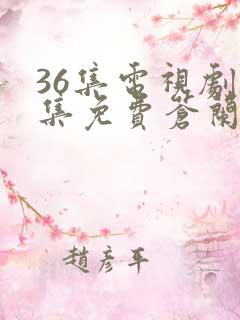 36集電視劇
集免費蒼蘭
趙彥平